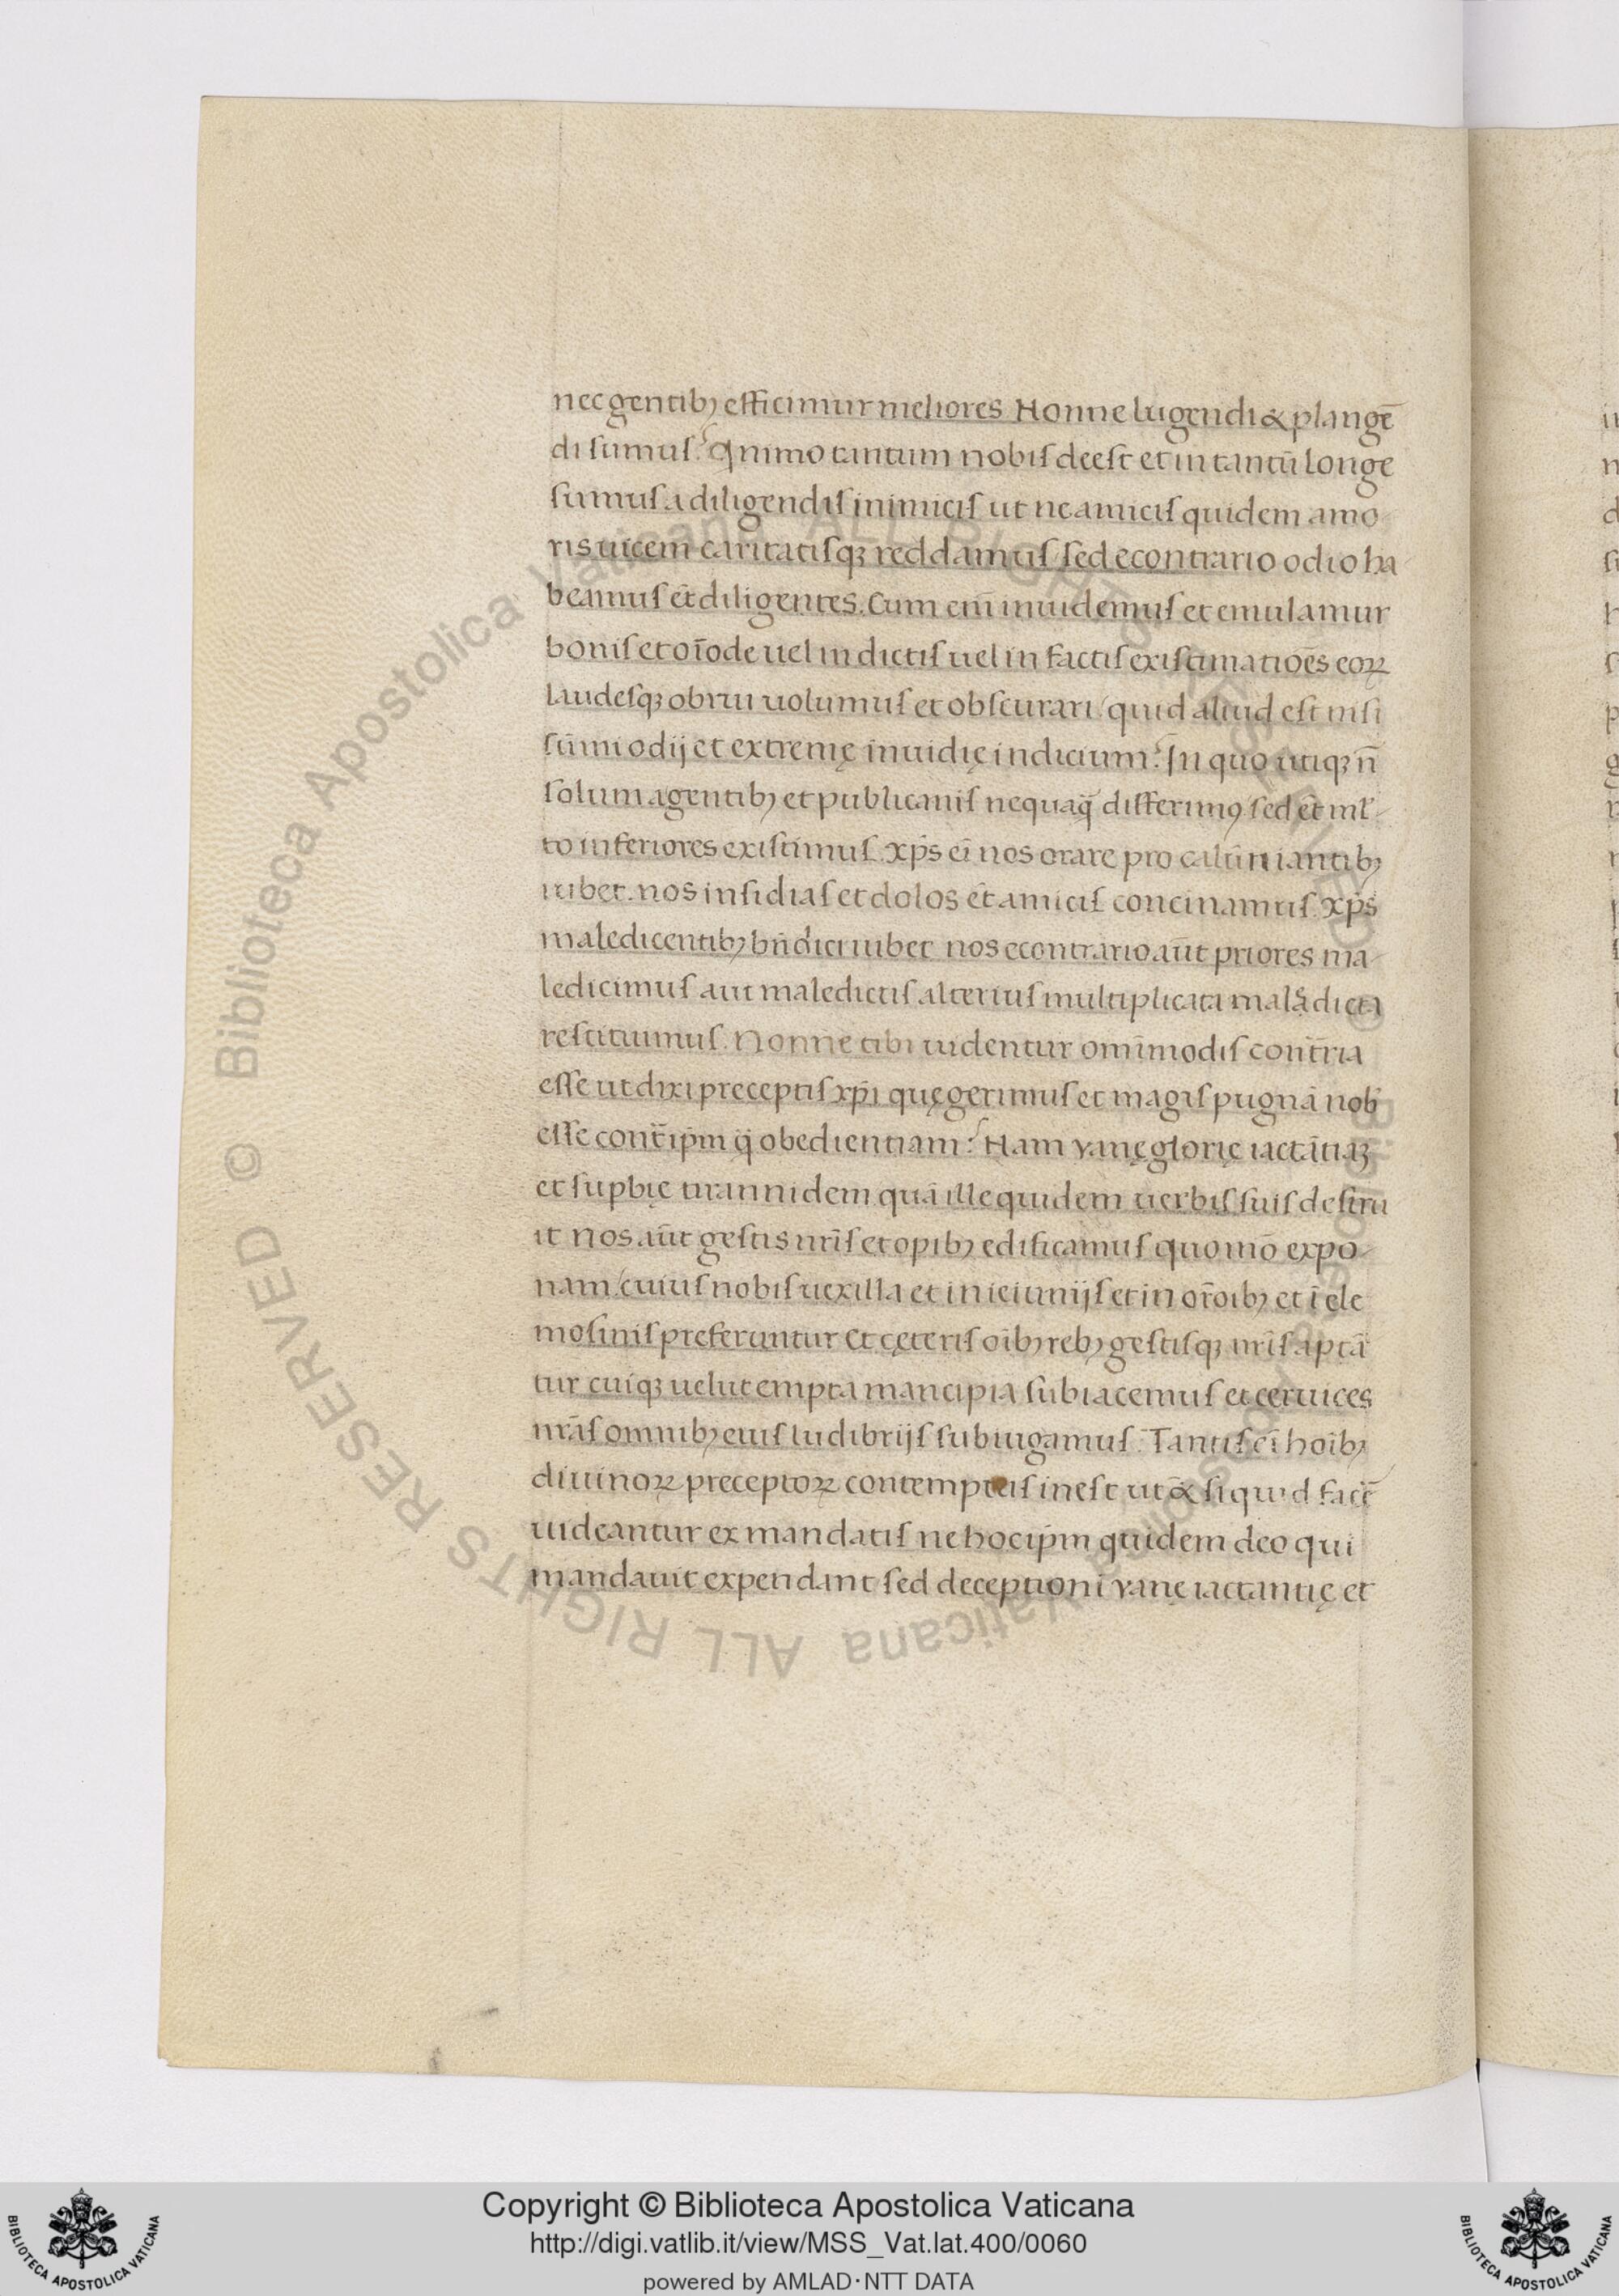 nec gentibꝫ efficimur meliores. Nonne lugendi & plangē
di sumus? Qnimo tantum nobis deest et in tantū longe
sumus a diligendis inimicis ut ne amicis quidem amo
ris uicem caritatisqꝫ reddamus sed econtrario odio ha
beamus et̄ diligentes. Cum em̄ inuidemus et emulamur
bonis et oīode uel in dictis uel in factis existimatiōes eoꝝ
laudesqꝫ obrui uolumus et obscurari / quid aliud est nisi
sūmi odij et extremę inuidię indicium? In quo utiqꝫ n̄
solum a gentibꝫ et publicanis nequaq̄ differimꝰ sed et ml̄
to inferiores existimus. xp̄s ei̅ nos orare pro calūniantibꝫ
iubet. nos insidias et dolos et̄ amicis concinamus. xp̄s
maledicentibꝫ bn̄dici iubet nos econtrario aūt priores ma
ledicimus aut maledictis alterius multiplicata mala dicta
restituimus. Nonne tibi uidentur omīmodis cont̄ria
esse ut dixi preceptis xp̄i quę gerimus et magis pugnā nob̄
esse cont̄ ip̄m q̄ obedientiam? Nam vanę glorię iactātiaꝫ
et supbię tirannidem quā ille quidem uerbis suis destru
it nos aūt gestis nr̄is et opibꝫ edificamus quomō expo
nam / cuius nobis uexilla et in ieiunijs et in or̄oibꝫ et ī ele
mosinis preferuntur et cęteris oībꝫ rebꝫ gestisqꝫ nr̄is aptā
tur cuiqꝫ uelut empta mancipia subiacemus et ceruices
nr̄as omnibꝫ eius ludibrijs subiugamus. Tantus ei̅ hoībꝫ
diuinoꝝ preceptoꝝ contemptus inest ut & si quid facē
uideantur ex mandatis ne hoc ip̄m quidem deo qui
mandauit expendant sed deceptioni vanę iactantię et
© Biblioteca Apostolica Vaticana ALL RIGHTS RESERVED
© Biblioteca Apostolica Vaticana ALL RIGHTS RESERVED
Copyright © Biblioteca Apostolica Vaticana
http://digi.vatlib.it/view/MSS_Vat.lat.400/0060
powered by AMLAD·NTT DATA
BIBLIOTECA APOSTOLICA VATICANA
BIBLIOTECA APOSTOLICA VATICANA